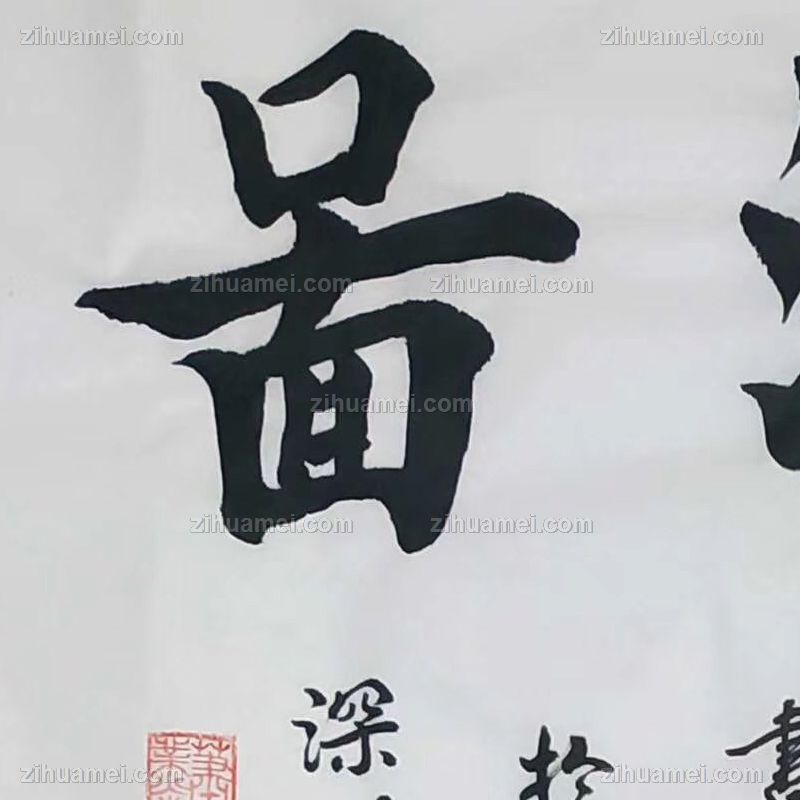 啚
書
於
深
zihuamei.com
zihuamei.com
zihuamei.com
zihuamei.com
zihuamei.com
zihuamei.com
zihuamei.com
zihuamei.com
zihuamei.com